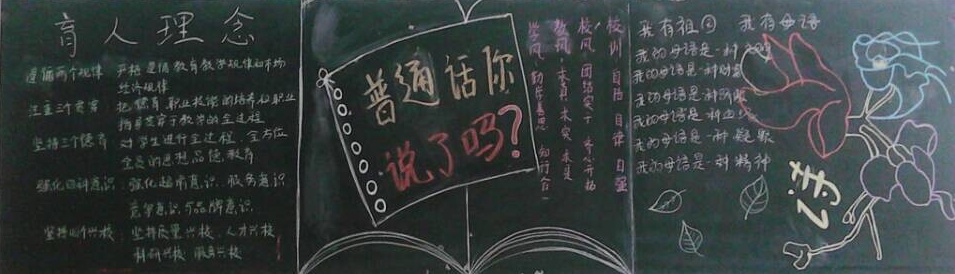 育人理念
遵循两个规律 严格遵循教育教学规律和市场
经济规律
注重三个贯穿 把德育、职业技能的培养和职业
指导贯穿于教学的全过程
坚持三个德育 对学生进行全过程、全方位
全员的思想品德教育
强化四种意识：强化超前意识、服务意识
竞争意识与品牌意识
坚持四个兴校：坚持质量兴校、人才兴校
科研兴校 服务兴校
普通话你
说了吗?
校训 自信 自律 自强
校风 团结实干 开拓
教风 求真 求实 求是
学风 勤学善思 知行合一
我有祖国 我有母语
我的母语是一种
我的母语是一种
我的母语是一种
我的母语是一种
我的母语是一种
我的母语是一种精神
诗